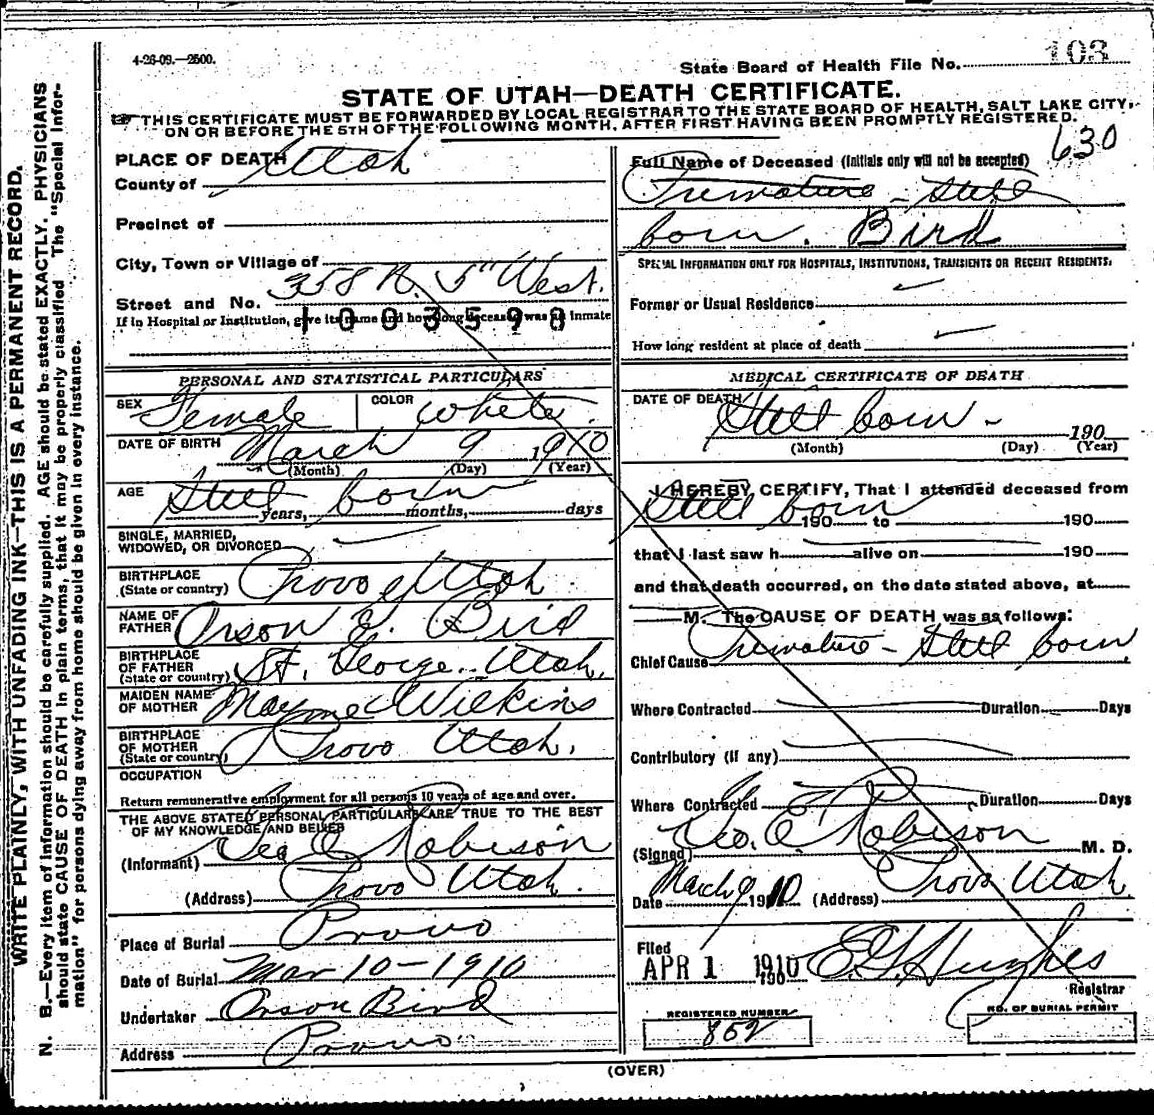 4-26-09.—2500.
State Board of Health File No. 103
STATE OF UTAH—DEATH CERTIFICATE.
THIS CERTIFICATE MUST BE FORWARDED BY LOCAL REGISTRAR TO THE STATE BOARD OF HEALTH, SALT LAKE CITY,
ON OR BEFORE THE 5TH OF THE FOLLOWING MONTH, AFTER FIRST HAVING BEEN PROMPTLY REGISTERED.
630
PLACE OF DEATH
County of Utah
Precinct of
City, Town or Village of
Street and No. 358 N. 5" West.
If in Hospital or Institution, give its name and how long deceased was an inmate
1003598
Full Name of Deceased (Initials only will not be accepted)
Premature - Still
born. Bird
SPECIAL INFORMATION ONLY FOR HOSPITALS, INSTITUTIONS, TRANSIENTS OR RECENT RESIDENTS.
Former or Usual Residence
How long resident at place of death
PERSONAL AND STATISTICAL PARTICULARS
SEX Female COLOR White
DATE OF BIRTH March 9 1910
(Month) (Day) (Year)
AGE Still born
years, months, days
SINGLE, MARRIED,
WIDOWED, OR DIVORCED
BIRTHPLACE
(State or country) Provo Utah
NAME OF
FATHER Orson E. Bird
BIRTHPLACE
OF FATHER
(State or country) St. George Utah,
MAIDEN NAME
OF MOTHER Mayme Wilkins
BIRTHPLACE
OF MOTHER
(State or country) Provo Utah.
OCCUPATION
Return remunerative employment for all persons 10 years of age and over.
THE ABOVE STATED PERSONAL PARTICULARS ARE TRUE TO THE BEST
OF MY KNOWLEDGE AND BELIEF
(Informant) Geo. E. Robison
(Address) Provo Utah.
Place of Burial Provo
Date of Burial Mar 10-1910
Undertaker Orson Bird
Address Provo
MEDICAL CERTIFICATE OF DEATH
DATE OF DEATH Still born - 190
(Month) (Day) (Year)
I HEREBY CERTIFY, That I attended deceased from
Still born 190 to 190
that I last saw h alive on 190
and that death occurred, on the date stated above, at
M. The CAUSE OF DEATH was as follows:
Chief Cause Premature - Still born
Where Contracted Duration Days
Contributory (if any)
Where Contracted Duration Days
(Signed) Geo. E. Robison M. D.
Date March 9 1910 (Address) Provo Utah
Filed
APR 1 1910 190 E G Hughes
Registrar
REGISTERED NUMBER
852
NO. OF BURIAL PERMIT
(OVER)
WRITE PLAINLY, WITH UNFADING INK—THIS IS A PERMANENT RECORD.
N. B.—Every item of information should be carefully supplied. AGE should be stated EXACTLY. PHYSICIANS
should state CAUSE OF DEATH in plain terms, that it may be properly classified. The "Special Infor-
mation" for persons dying away from home should be given in every instance.